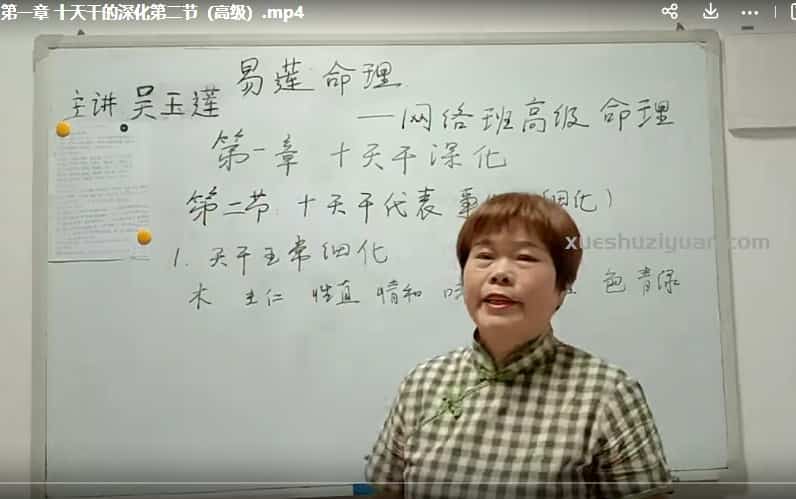 第一章 十天干的深化第二节（高级）.mp4
易莲命理
主讲 吴玉莲
—网络班高级 命理
第一章 十天干深化
第二节 十天干代表 细化）
xueshuziyuan.com
1. 天干五常细化
木 主仁 性直 情和 味 色 青绿